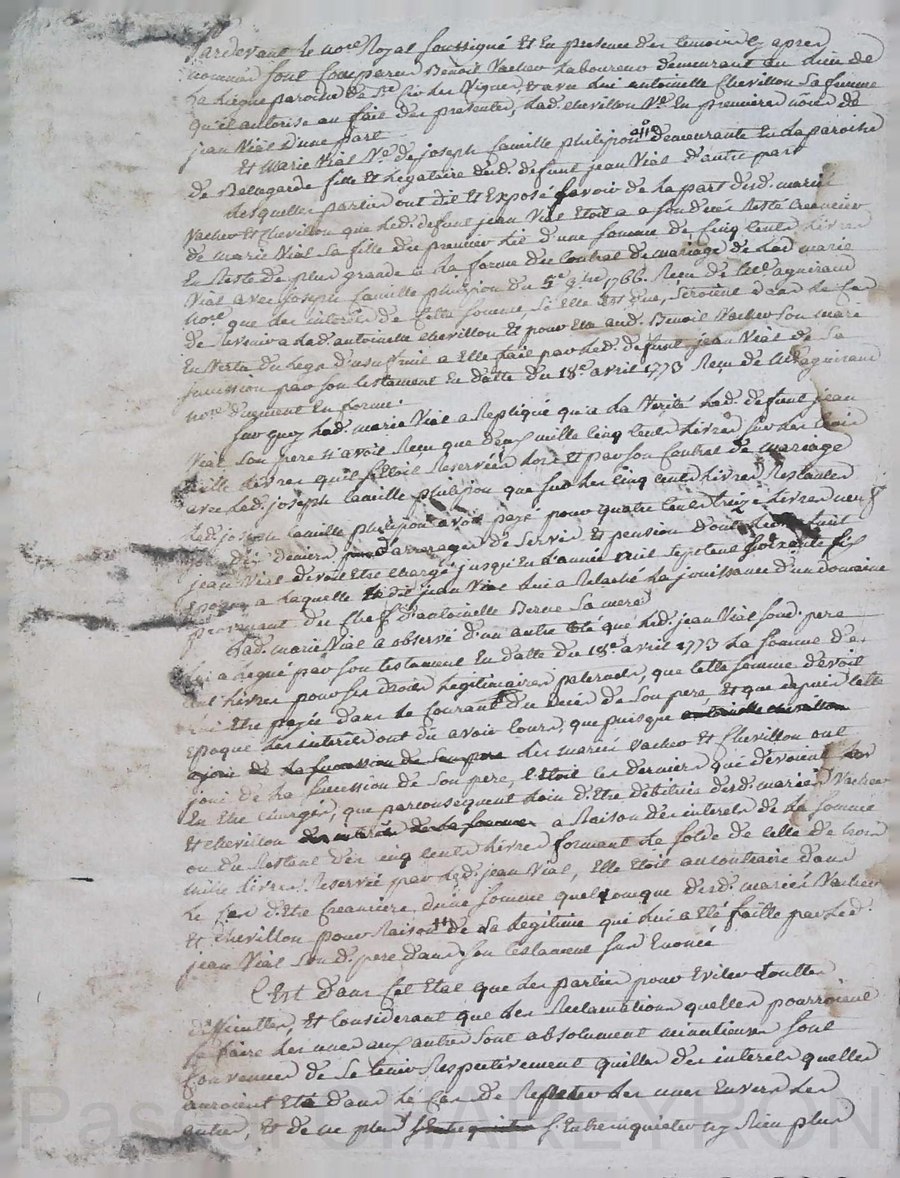 Pardevant le nore Royal soussigné Et En presence des temoins cy apres
nommés sont comparus Benoit Vacher Laboureur demeurant au lieu de
paroisse de des Vignes Et avec lui antoinette Chevillon sa femme
qu'il autorise au fait des presentes, lad. chevillon Ve En premieres nôces de
jean Vial d'une part
Et Marie Vial Ve de joseph Camille philipon demeurante En la paroisse
de Bellegarde fille Et legataire dud. defunt jean Vial d'autre part
Lesquelles parties ont dit Et Exposé savoir de la part desd. mariés
Vacher Et chevillon que led. defunt jean Vial Etoit a son decés Resté Creancier
de marie Vial sa fille du premier lit d'une somme de cinq cents livres
En Reste de plus grande a la forme du Contrat de mariage de lad. marie
Vial avec joseph Camille philipon du 5e 1766. Reçu de Me aguiraud
nore. que les interets de cette somme, si Elle Est due, seroient dans le Cas
de Revenir a lad. antoinette chevillon Et pour Elle aud. Benoit Vacher son mari
En Vertu du legs d'usufruit a Elle fait par led. defunt jean Vial de sa
succession par son testament En datte du 18e avril 1773 Reçu de Me aguiraud
nore dument En forme.
Sur quoy lad. marie Vial a Repliqué qu'a la Verité led. defunt jean
Vial son pere n'avoit Reçu que deux mille cinq cents livres sur les trois
mille livres qu'il s'etoit Reservées lors Et par son Contrat de mariage
avec led. joseph Camille philipon que sur les cinq cents livres Restantes
led. joseph Camille philipon avoit payé pour quatre cents treize livres neuf s.
six deniers d'arrerages de servis Et pension dont led. defunt
jean Vial devoit Etre chargé jusqu'en l'année mil sept cent soixante six
Epoque a laquelle led. jean Vial lui a Relaché la jouissance d'un domaine
provenant du Chef d'antoinette sa mere
Lad. marie Vial a observé d'un autre coté que led. jean Vial son d. pere
lui a legué par son testament En datte du 18e avril 1773 la somme de
cent livres pour ses droits legitimaires paternels, que cette somme devoit
lui Etre payée dans le Courant du decés de son pere Et que depuis cette
Epoque les interets ont du avoir cours, que puisque antoinette chevillon
a joui de la succession de son pere les mariés Vacher Et Chevillon ont
joui de la succession de son pere, c'etoit ces derniers qui devoient les
En Etre chargés, que par consequent loin d'Etre debitrice desd. mariés Vacher
Et chevillon des interets de la somme a Raison des interets de la somme
ou du Restant des cinq cents livres formant le solde de celle de trois
mille livres Reservée par led. jean Vial, Elle Etoit au contraire dans
le Cas d'Etre Creanciere d'une somme quelconque desd. mariés Vacher
Et chevillon pour Raison de sa legitime qui lui a Eté faitte par led.
jean Vial son d. pere dans son testament sus Enoncé
C'Est dans cet Etat que les parties pour Eviter toutes
difficultes, Et Considerant que les Reclamations quelles pourroient
se faire les unes aux autres sont absolument minutieuses sont
Convenues de se tenir Respectivement quittes des interets quelles
auroient Eté dans le Cas de Repeter les unes Envers les
autres, Et de ne plus s'Entrequitter s'Entreinquieter ny Rien plus
Pascal CHAREYRON